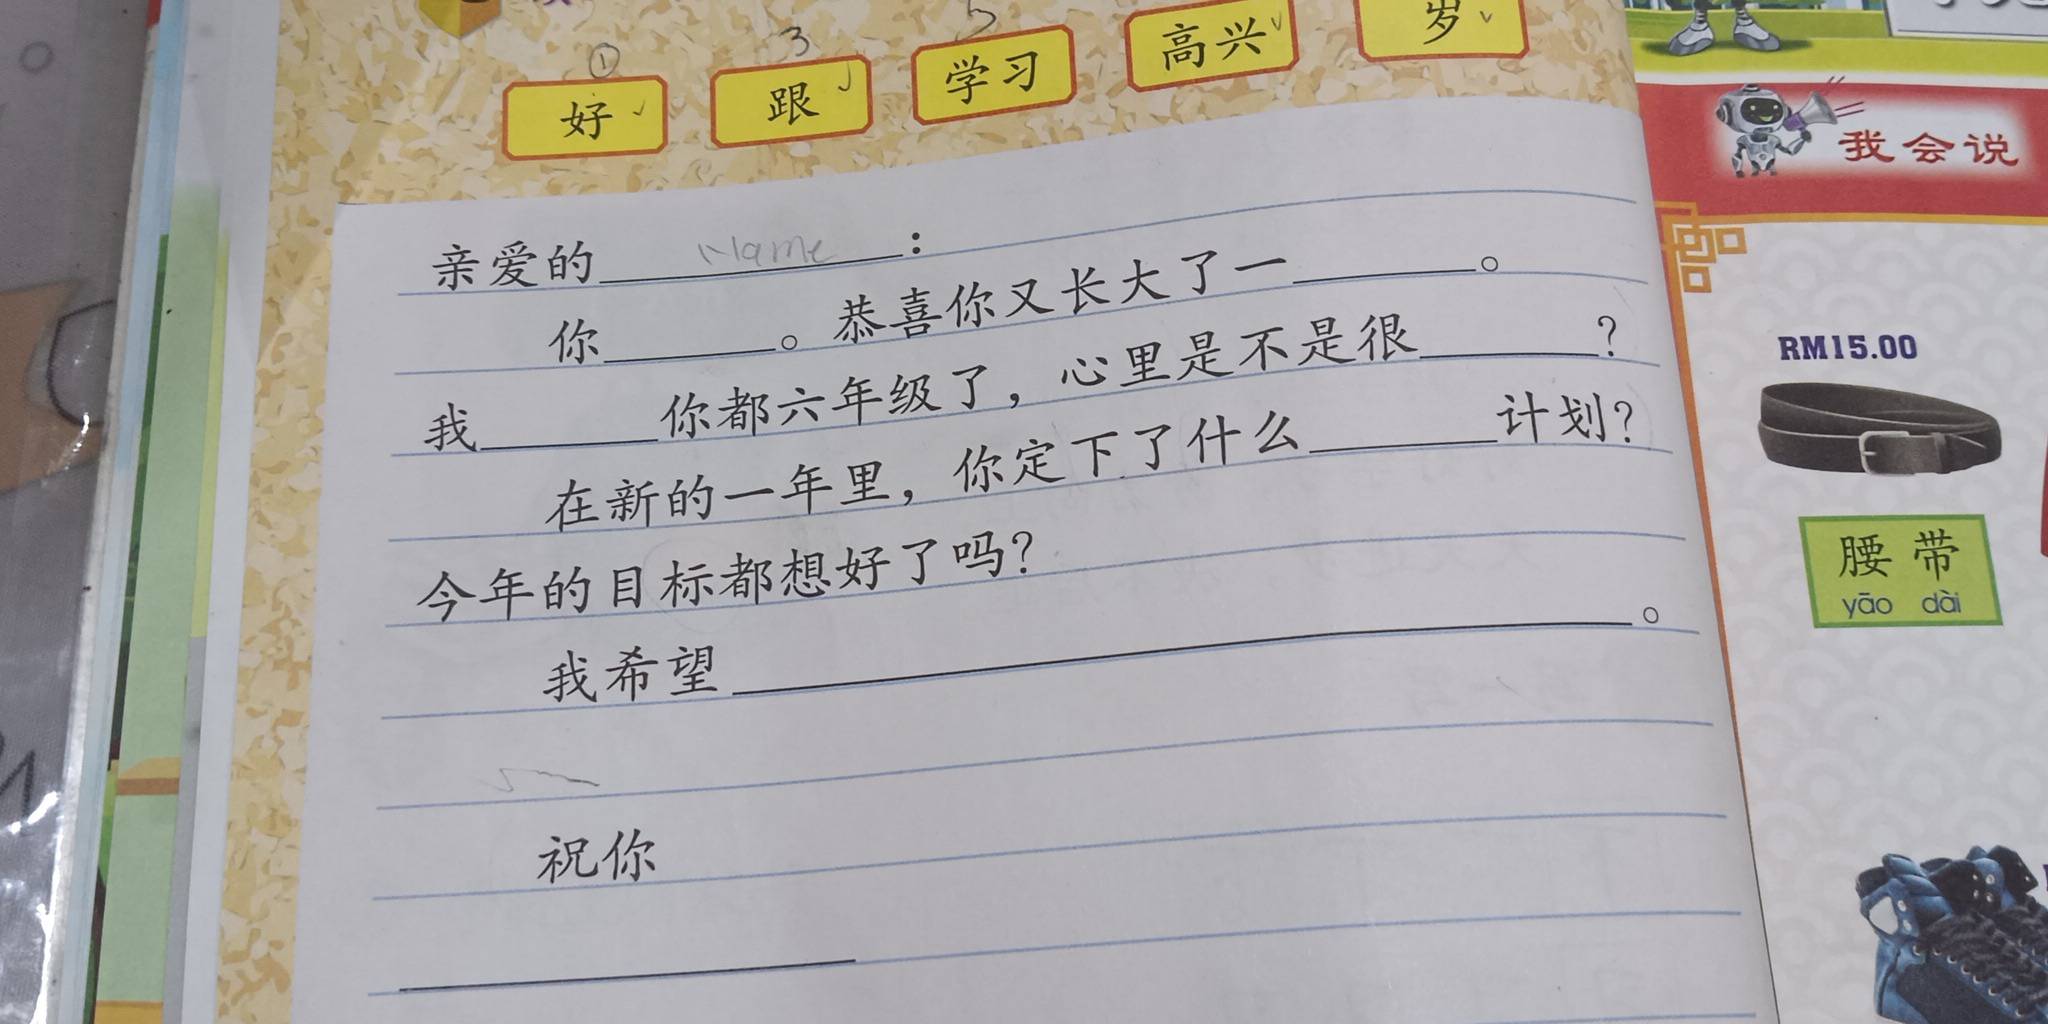 ① 3 5
好 跟 学习 高兴 岁
亲爱的 Name :
你 。恭喜你又长大了一 。
我 你都六年级了，心里是不是很 ？
在新的一年里，你定下了什么 计划？
今年的目标都想好了吗？
我希望 。
祝你
我会说
RM15.00
腰带
yāo dài